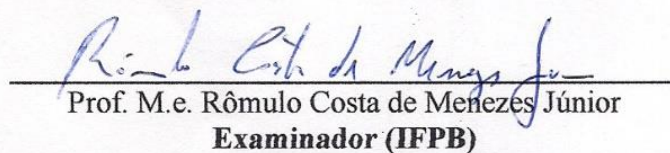 Rômulo Costa de Menezes Júnior
Prof. M.e. Rômulo Costa de Menezes Júnior
Examinador (IFPB)